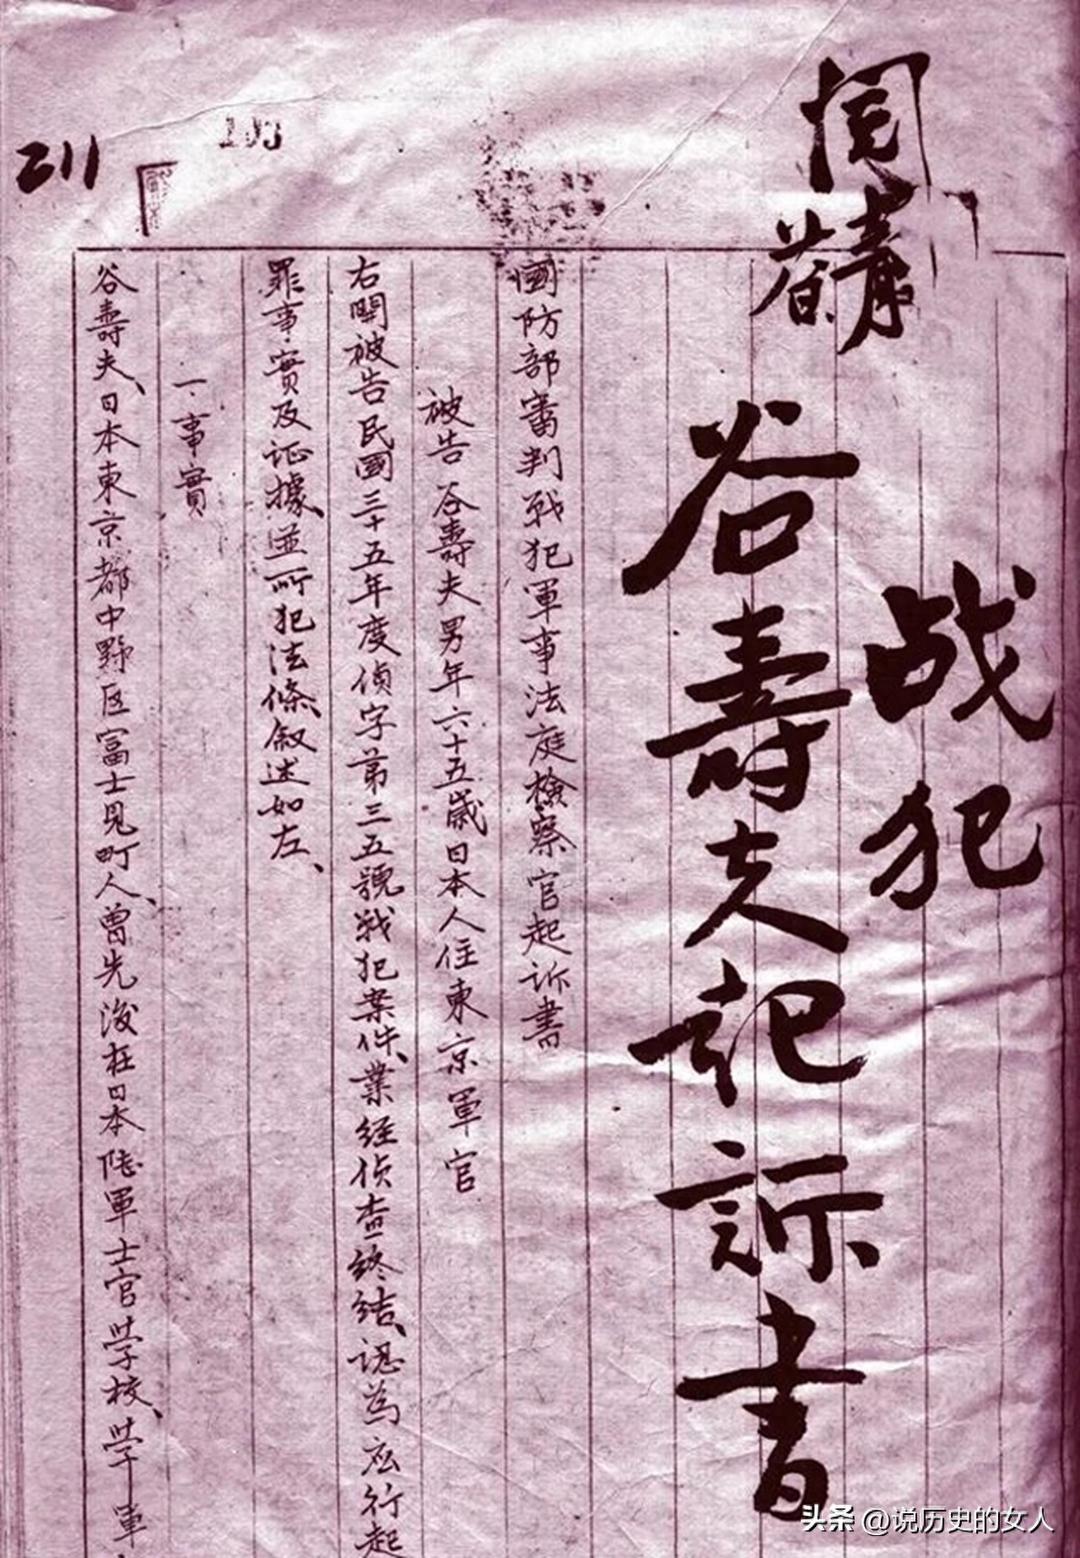 211
103
战犯
谷壽夫起訴書
國防部審判戰犯軍事法庭檢察官起訴書
被告 谷壽夫男年六十五歲日本人住東京軍官
右開被告民國三十五年度偵字第三五號戰犯案件、業経偵查終結、認為应行起
罪事實及证據、並所犯法條、叙述如左、
一、事實
谷壽夫、日本東京都中野区富士見町人、曾先後在日本陸軍士官学校、学軍
头条 @说历史的女人